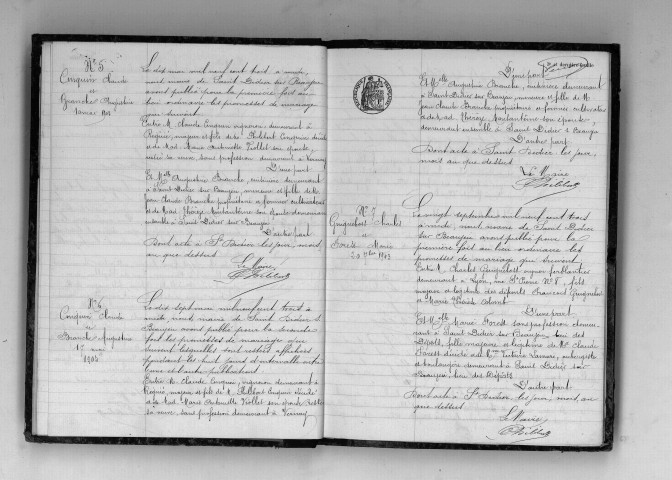 N° 5
Conquin Claude
et
Branche Augustine
Le dix mai mil neuf cent trois à midi,
nous maire de Saint Didier sur Beaujeu
avons publié pour la première fois au
lieu ordinaire les promesses de mariage
que suivent
Entre M. Claude Conquin vigneron demeurant à
Régnié, majeur et fils de Philibert Conquin décédé
et de Mad. Marie Antoinette Viollet son épouse,
sa mère sans profession demeurant à
D'une part
Et Melle Augustine Branche, couturière demeurant
à Saint Didier sur Beaujeu, mineure et fille de M.
Jean Claude Branche propriétaire et fermier cultivateur
et de Mad. Thérèse son épouse demeurant
ensemble à Saint Didier sur Beaujeu
D'autre part
Dont acte à St Didier les jour, mois
an que dessus
Le Maire
N° 6
Conquin Claude
et
Branche Augustine
17 mai
1903
Le dix sept mai mil neuf cent trois à
midi nous maire de Saint Didier sur
Beaujeu avons publié pour la seconde
fois les promesses de mariage qui
suivent lesquelles sont restées affichées
pendant les huit jours d'intervalle entre
l'une et l'autre publication
Entre M. Claude Conquin, vigneron demeurant à
Régnié, majeur et fils de M. Philibert Conquin décédé
et de Mad. Marie Antoinette Viollet son épouse
sa mère, sans profession demeurant à
et dernier feuillet
D'une part
Et Melle Augustine Branche, couturière demeurant
à Saint Didier sur Beaujeu, mineure et fille de M.
Jean Claude Branche propriétaire et fermier cultivateur
et de Mad. Thérèse son épouse,
demeurant ensemble à Saint Didier s Beaujeu
D'autre part
Dont acte à Saint Didier les jour,
mois an que dessus
Le Maire
N° 7
Guignebert Charles
et
Forest Marie
20 7bre 1903
Le vingt septembre mil neuf cent trois
à midi, nous maire de Saint Didier
sur Beaujeu avons publié pour la
première fois au lieu ordinaire les
promesses de mariage que suivent
Entre M. Charles Guignebert, ouvrier ferblantier
demeurant à Lyon, rue St Pierre N° 8, fils
majeur et légitime des défunts François Guignebert
et Marie
D'une part
Et Melle Marie Forest sans profession demeu-
rant à Saint Didier sur Beaujeu lieu des
Dépôts, fille majeure et légitime de M. Claude
Forest décédé et de Victoire aubergiste
et boulangère demeurant à Saint Didier sur
Beaujeu, lieu des Dépôts
D'autre part
Dont acte à St Didier, les jour, mois, an
que dessus
Le Maire